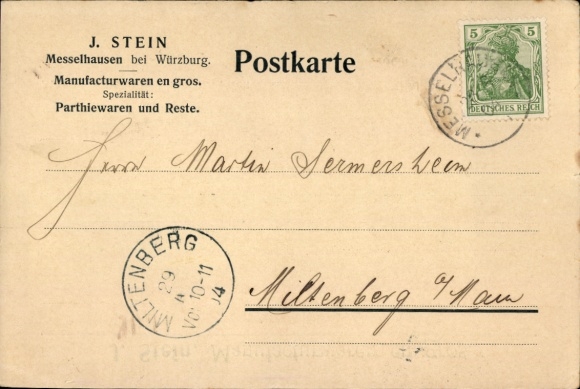 J. STEIN
Messelhausen bei Würzburg.
Manufacturwaren en gros.
Spezialität:
Parthiewaren und Reste.
Postkarte
5 5
DEUTSCHES REICH
MESSEL
Herrn Martin Sermersheim
MILTENBERG
29
Vor 10-11
04
Miltenberg a/Main